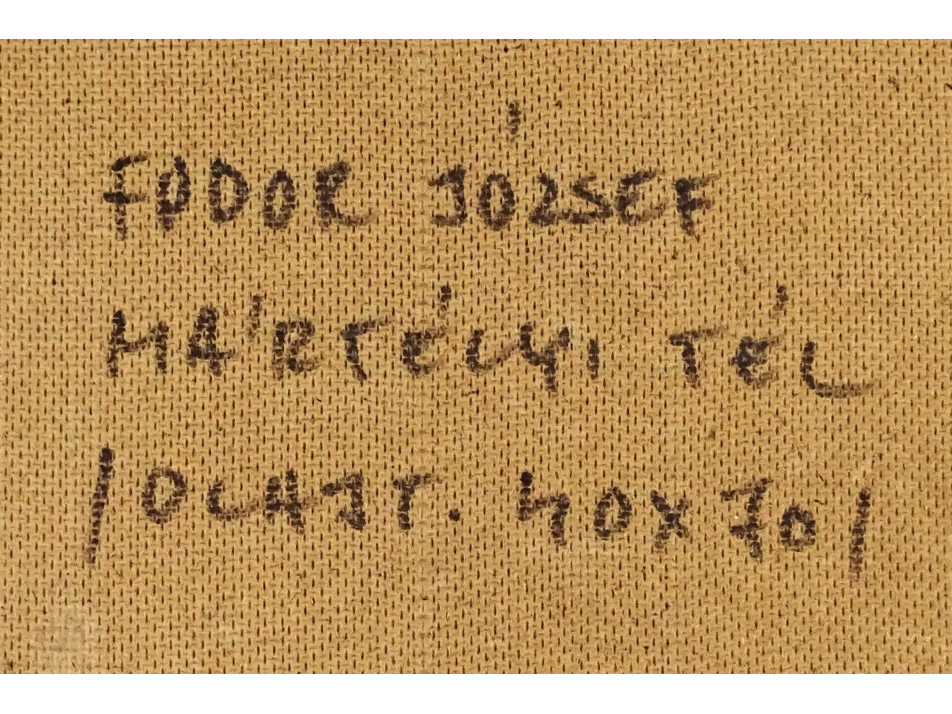 FODOR JÓZSEF
MÁRTÉLYI TÉL
/OLAJT. 40X70/